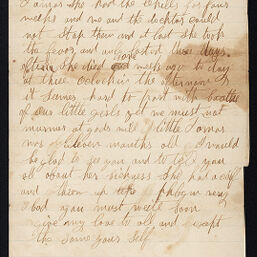 she had the chills for four
weeks and me and the docktor could
not stop them and at last she took
the fever and only lasted three days
then she died one week ago to day
at three oclock in the afternoon
it seames hard to part with boath
of our little girls yet we must not
murmar at gods will little
was eleven months old I would
be glad to see you and to tell you
all about her sickness She had a
and
bad you must write soon
give my love to all and except
the same your self